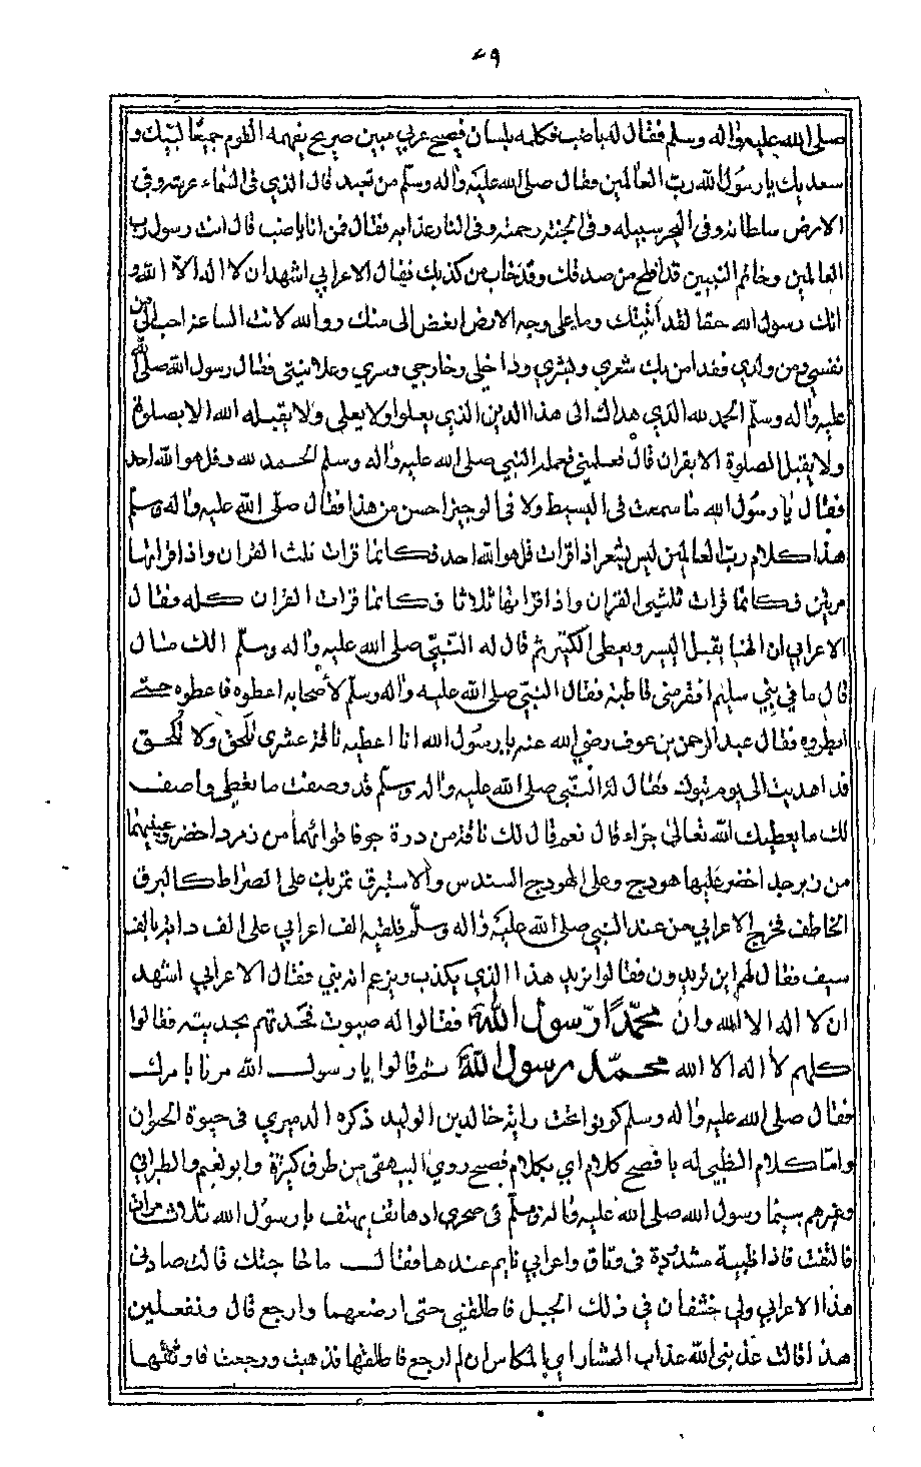 ٤٩
صلى الله عليه واله وسلم فقال له ياضب فكلمه بلسان فصيح عربي مبين صريح يفهمه القوم جميعًا لبيك و
سعديك يا رسول الله رب العالمين فقال صلى الله عليه واله وسلم من تعبد قال الذي في السماء عرشه وفي
الارض سلطانه وفي البحر سبيله وفي الجنة رحمته وفي النار عذابه فقال فمن انا ياضب قال انت رسول رب
العالمين وخاتم النبيين قد افلح من صدقك وقد خاب من كذبك فقال الاعرابي اشهد ان لا اله الا الله و
انك رسول الله حقا لقد أتيتك وما على وجه الارض ابغض الى منك ووالله لانت الساعة احب الى من
نفسي ومن ولدي فقد امن بك شعري وبشري وداخلي وخارجي وسري وعلانيتي فقال رسول الله صلى الله
عليه واله وسلم الحمد لله الذي هداك الى هذا الدين الذي يعلوا ولا يعلى ولا يقبله الله الا بصلوة
ولا يقبل الصلوة الا بقران قال فعلمني فعلمه النبي صلى الله عليه واله وسلم الحمد لله وقل هو الله احد
فقال يا رسول الله ما سمعت في البسيط ولا في الوجيز احسن من هذا فقال صلى الله عليه واله وسلم
هذا كلام رب العالمين ليس بشعر اذ اقرات قل هو الله احد فكانما قرات ثلث القران واذا قراتها
مرتين فكانما قرات ثلثي القران واذا قراتها ثلاثا فكانما قرات القران كله فقال
الاعرابي ان الهنا يقبل اليسير ويعطي الكثير ثم قال له النبي صلى الله عليه واله وسلم الك مال
قال ما في بني سليم افقر مني قاطبة فقال النبي صلى الله عليه واله وسلم لأصحابه اعطوه فاعطوه حتى
ابطروه فقال عبد الرحمن بن عوف رضي الله عنه يا رسول الله انا اعطيه ناقة عشرى تلحق ولا تلحق
قد اهديت الى يوم تبوك فقال له النبي صلى الله عليه واله وسلم قد وصفت ما تعطي واصف
لك ما يعطيك الله تعالى جزاء قال نعم قال لك ناقة من درة جوفا قوائمها من زمرد اخضر عينيها
من زبرجد اخضر عليها هودج وعلى الهودج السندس والاستبرق تمر بك على الصراط كالبرق
الخاطف فخرج الاعرابي من عند النبي صلى الله عليه واله وسلم فلقيه الف اعرابي على الف دابة بالف
سيف فقال لهم اين تريدون فقالوا نريد هذا الذي يكذب ويزعم انه نبي فقال الاعرابي اشهد
ان لا اله الا الله وان محمدًا رسول الله فقالوا له صبوت فحدثهم بحديثه فقالوا
كلهم لا اله الا الله محمد رسول الله ثم قالوا يا رسول الله مرنا بامرك
فقال صلى الله عليه واله وسلم كونوا تحت راية خالد بن الوليد ذكره الدميري في حيوة الحيوان
واما كلام الظبي له بافصح كلام اي بكلام فصيح روي البيهقي من طرق كثيرة وابو نعيم والطبراني
وغيرهم بينما رسول الله صلى الله عليه واله وسلم في صحرى اذ هاتف يهتف يا رسول الله ثلاث مرات
فالتفت فاذا ظبية مشدودة في وثاق واعرابي نايم عندها فقال ما حاجتك قالت صادني
هذا الاعرابي ولي خشفان في ذلك الجبل فاطلقني حتى ارضعهما وارجع قال وتفعلين
هذا قالت عذبني الله عذاب العشار اي المكاس ان لم ارجع فاطلقها فذهبت ورجعت فاوثقها